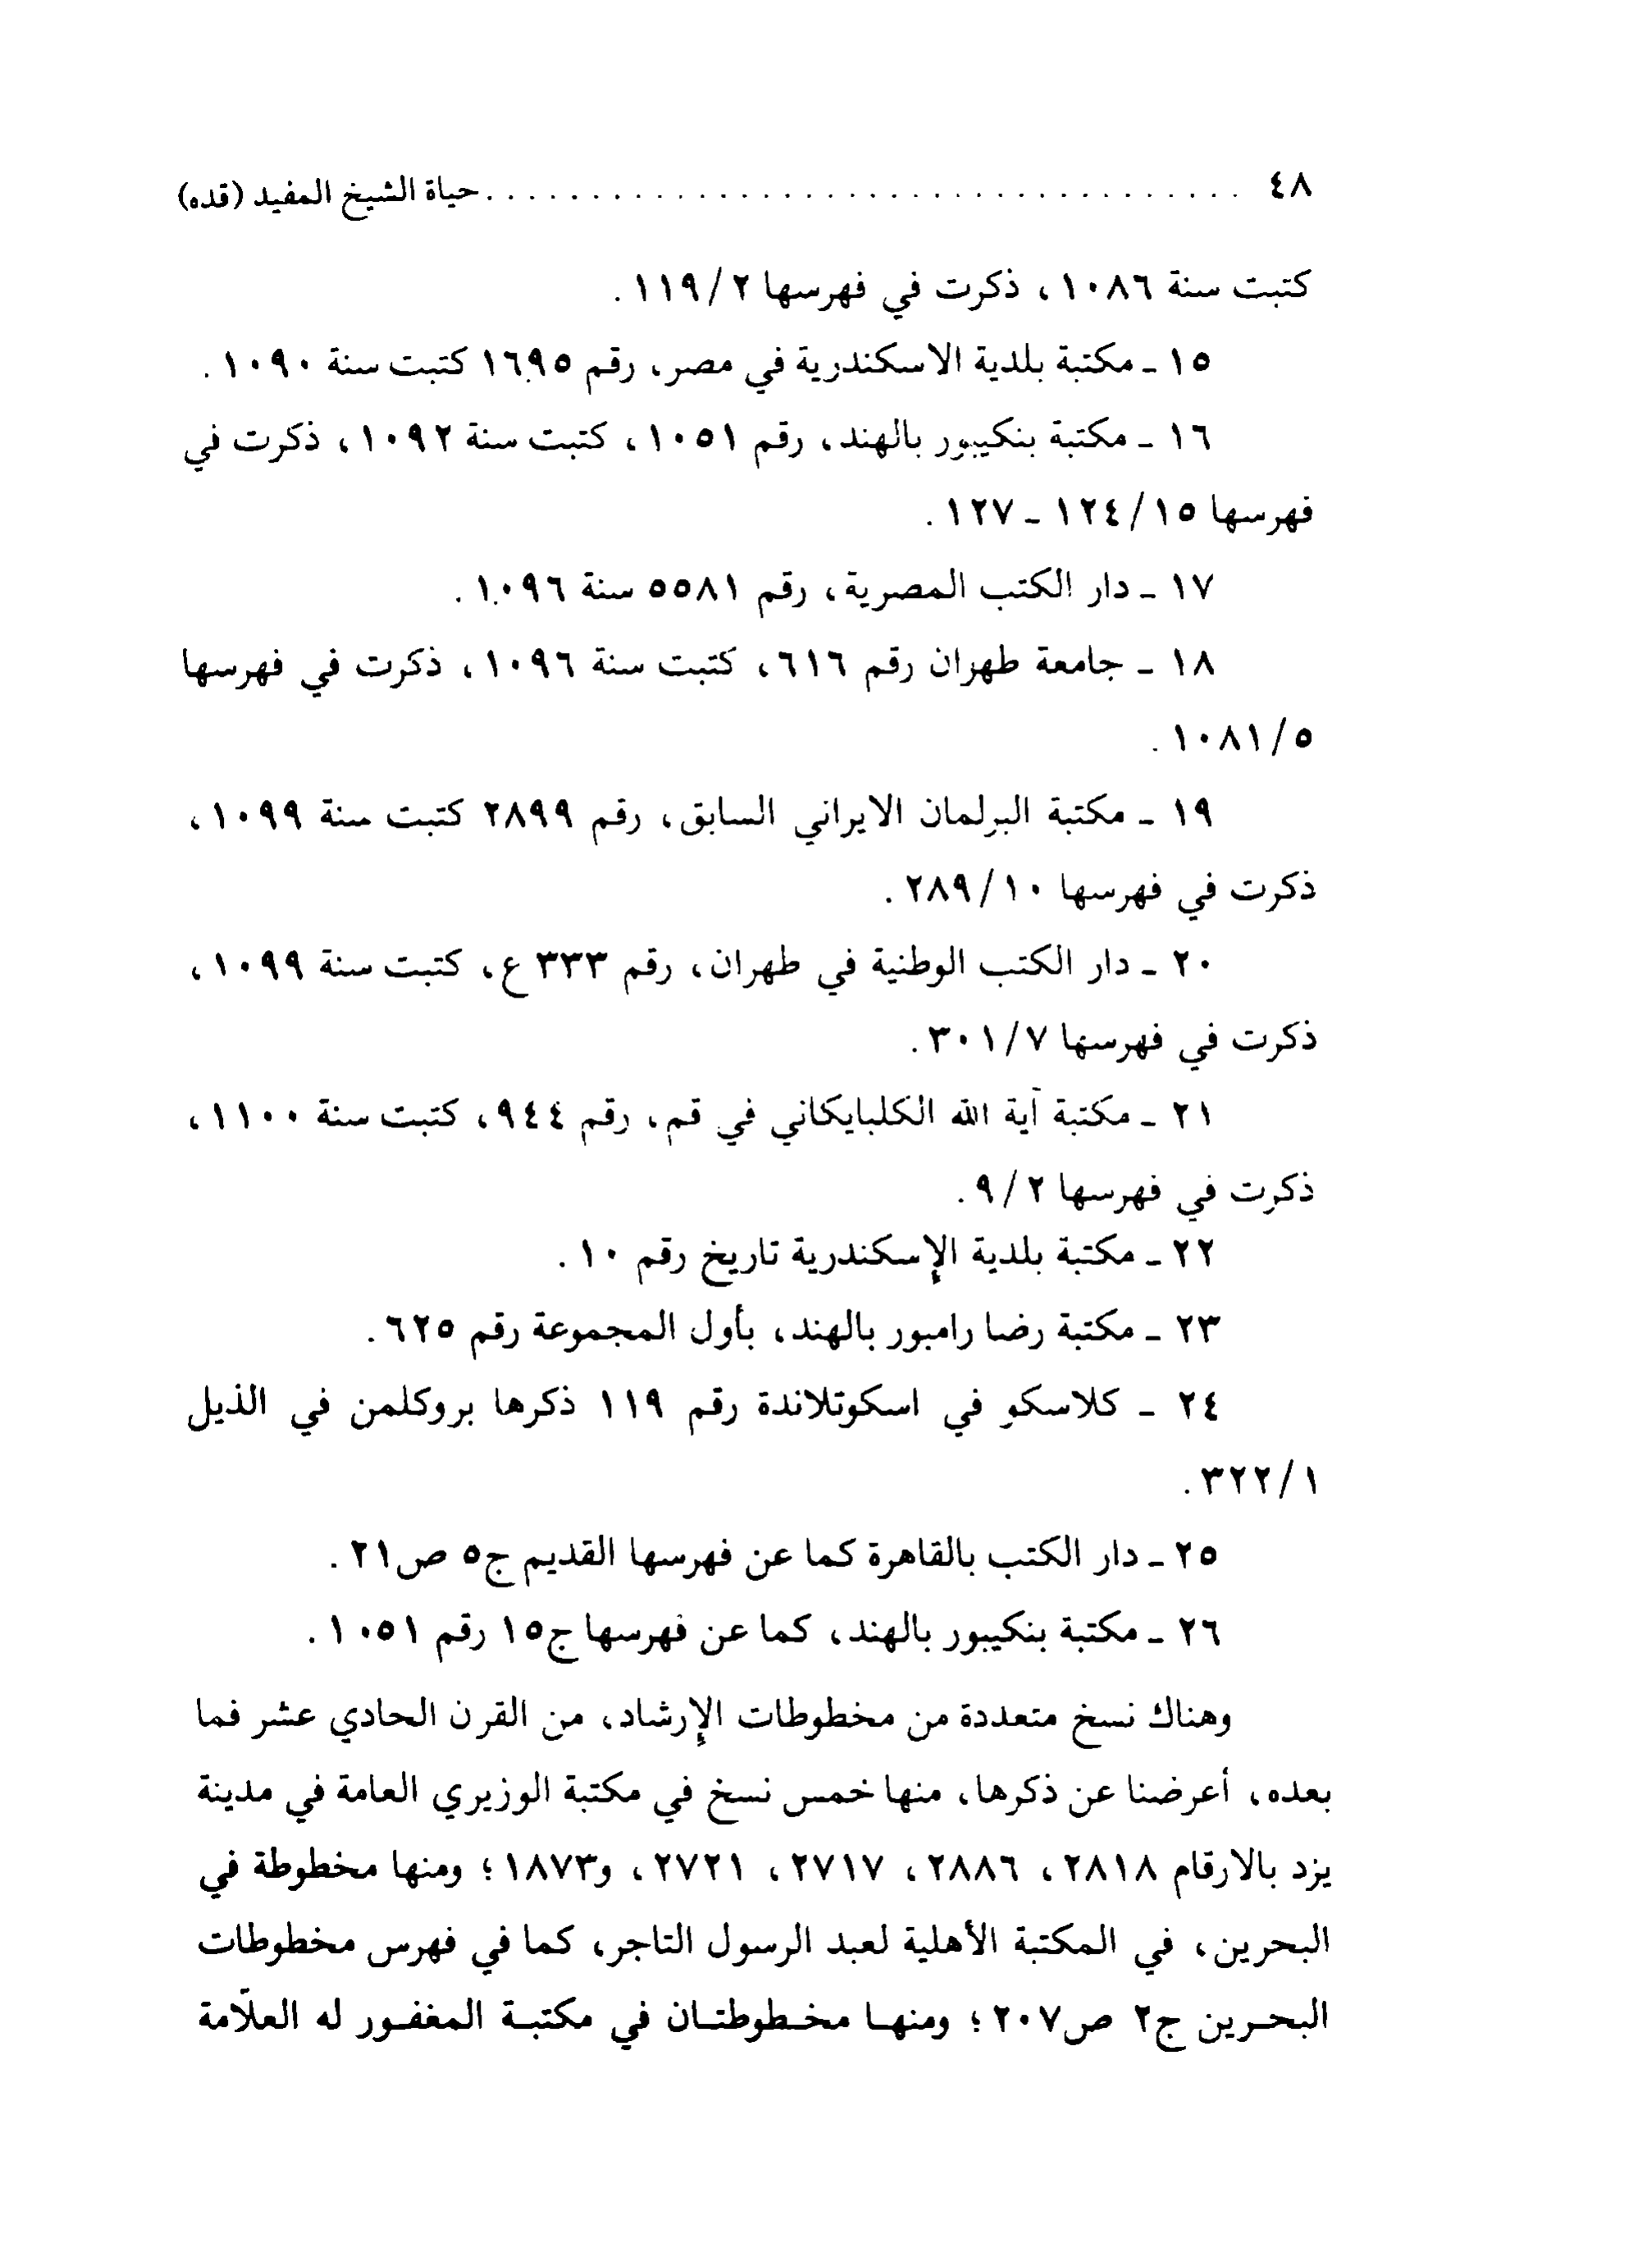 ٤٨ .................................... حياة الشيخ المفيد (قده)
كتبت سنة ١٠٨٦، ذكرت في فهرسها ١١٩/٢.
١٥ ـ مكتبة بلدية الاسكندرية في مصر، رقم ١٦٩٥ كتبت سنة ١٠٩٠.
١٦ ـ مكتبة بنكيبور بالهند، رقم ١٠٥١، كتبت سنة ١٠٩٢، ذكرت في
فهرسها ١٢٤/١٥ ـ ١٢٧.
١٧ ـ دار الكتب المصرية، رقم ٥٥٨١ سنة ١٠٩٦.
١٨ ـ جامعة طهران رقم ٦١٦، كتبت سنة ١٠٩٦، ذكرت في فهرسها
١٠٨١/٥.
١٩ ـ مكتبة البرلمان الايراني السابق، رقم ٢٨٩٩ كتبت سنة ١٠٩٩،
ذكرت في فهرسها ٢٨٩/١٠.
٢٠ ـ دار الكتب الوطنية في طهران، رقم ٣٣٣ ع، كتبت سنة ١٠٩٩،
ذكرت في فهرسها ٣٠١/٧.
٢١ ـ مكتبة آية الله الكلبايكاني في قم، رقم ٩٤٤، كتبت سنة ١١٠٠،
ذكرت في فهرسها ٩/٢.
٢٢ ـ مكتبة بلدية الإسكندرية تاريخ رقم ١٠.
٢٣ ـ مكتبة رضا رامبور بالهند، بأول المجموعة رقم ٦٢٥.
٢٤ ـ كلاسكو في اسكوتلاندة رقم ١١٩ ذكرها بروكلمن في الذيل
٣٢٢/١.
٢٥ ـ دار الكتب بالقاهرة كما عن فهرسها القديم ج٥ ص٢١.
٢٦ ـ مكتبة بنكيبور بالهند، كما عن فهرسها ج١٥ رقم ١٠٥١.
وهناك نسخ متعددة من مخطوطات الإرشاد، من القرن الحادي عشر فما
بعده، أعرضنا عن ذكرها، منها خمس نسخ في مكتبة الوزيري العامة في مدينة
يزد بالارقام ٢٨١٨، ٢٨٨٦، ٢٧١٧، ٢٧٢١، و١٨٧٣؛ ومنها مخطوطة في
البحرين، في المكتبة الأهلية لعبد الرسول التاجر، كما في فهرس مخطوطات
البحـرين ج٢ ص٢٠٧؛ ومنهـا مخـطوطتـان في مكتبـة المغفـور له العلّامة